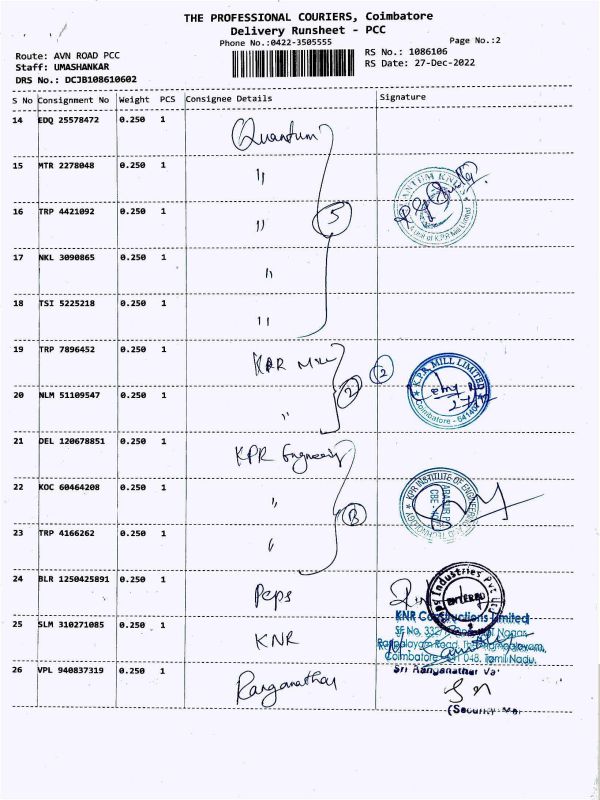 THE PROFESSIONAL COURIERS, Coimbatore
Delivery Runsheet - PCC
Phone No.:0422-3505555
Page No.:2
Route: AVN ROAD PCC
Staff: UMASHANKAR
DRS No.: DCJB108610602
RS No.: 1086106
RS Date: 27-Dec-2022
S No Consignment No Weight PCS Consignee Details Signature
14 EDQ 25578472 0.250 1 Quantum
15 MTR 2278048 0.250 1 "
16 TRP 4421092 0.250 1 " 5
17 NKL 3090865 0.250 1 "
18 TSI 5225218 0.250 1 "
19 TRP 7896452 0.250 1 KPR Mill 2
20 NLM 51109547 0.250 1 " 2
K.P.R. MILL LIMITED
Coimbatore
21 DEL 120678851 0.250 1 KPR Engineering
22 KOC 60464208 0.250 1 "
KPR INSTITUTE OF ENGINEERING
TECHNOLOGY
23 TRP 4166262 0.250 1 "
24 BLR 1250425891 0.250 1 Peps
Industries Pvt Ltd
25 SLM 310271085 0.250 1 KNR
KNR Constructions Limited
Coimbatore 048, Tamil Nadu.
26 VPL 940837319 0.250 1 Ranganathar
Sri Ranganathar Va